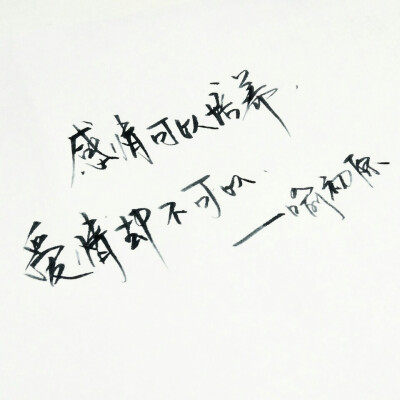 感情可以培养.
爱情却不可以.
—喻初原